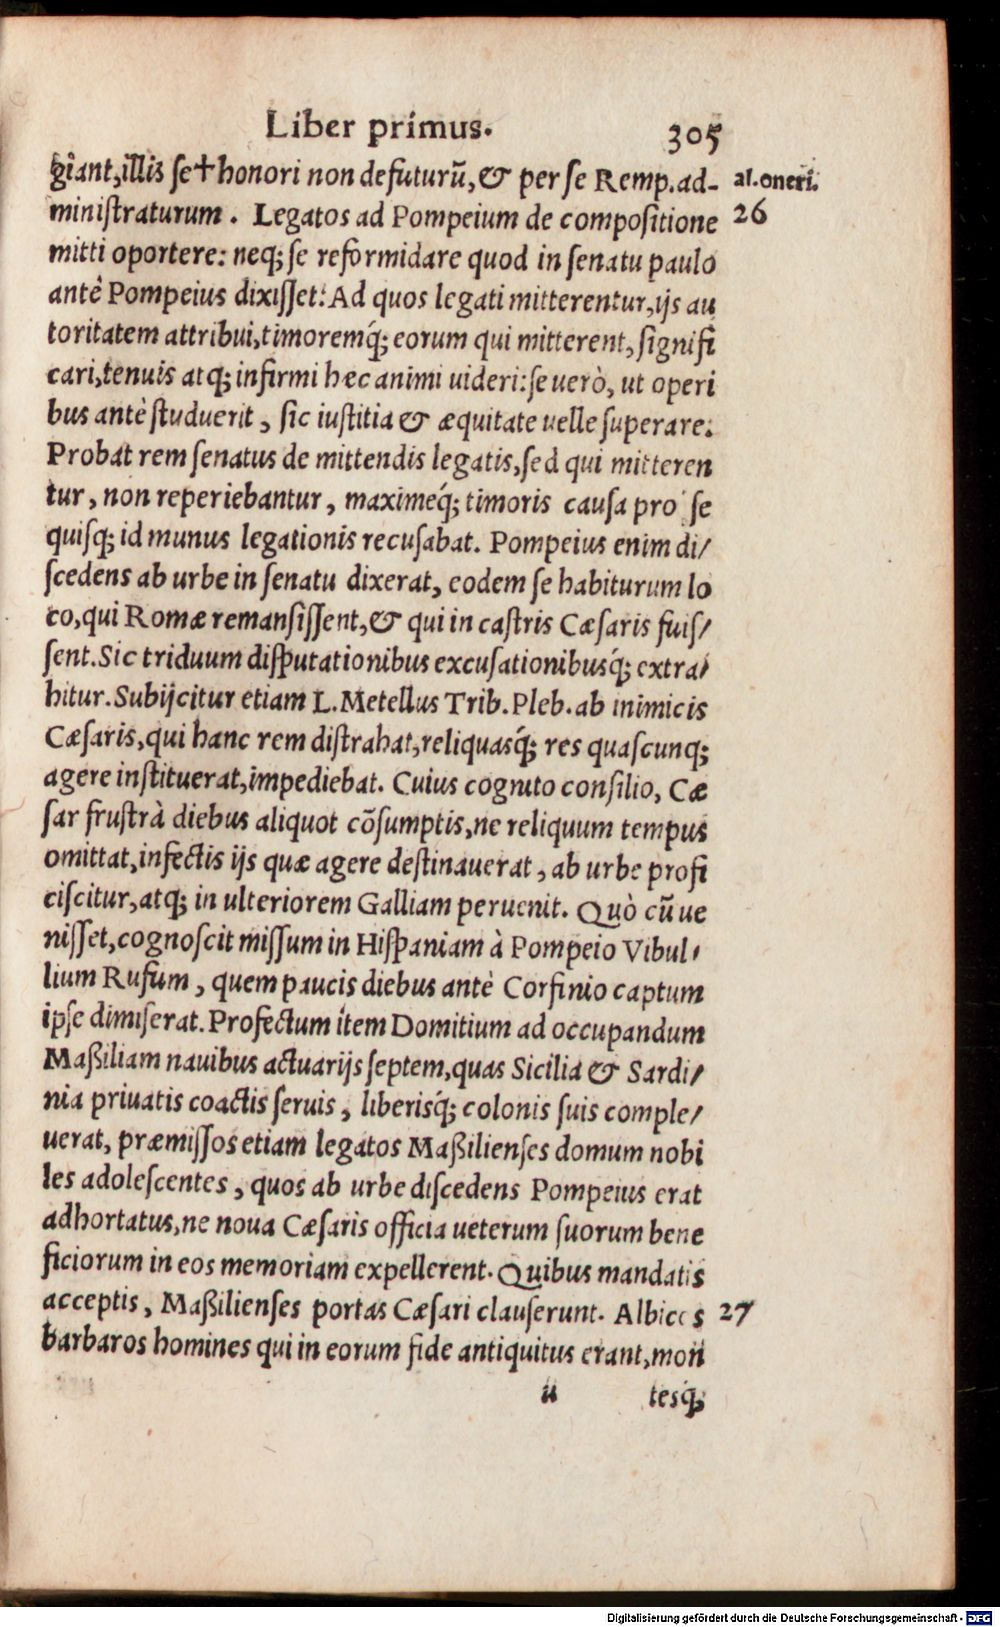 Liber primus. 305
giant, illis se✝honori non defuturũ, & per se Remp. ad- al. oneri.
ministraturum. Legatos ad Pompeium de compositione 26
mitti oportere: neq; se reformidare quod in senatu paulo
antè Pompeius dixisset: Ad quos legati mitterentur, ijs au
toritatem attribui, timoremq́; eorum qui mitterent, signifi
cari, tenuis atq; infirmi hec animi uideri: se uerò, ut operi
bus antè studuerit, sic iustitia & æquitate uelle superare.
Probat rem senatus de mittendis legatis, sed qui mitteren
tur, non reperiebantur, maximeq́; timoris causa pro se
quisq; id munus legationis recusabat. Pompeius enim di/
scedens ab urbe in senatu dixerat, eodem se habiturum lo
co, qui Romæ remansissent, & qui in castris Cæsaris fuis/
sent. Sic triduum disputationibus excusationibusq́; extra/
hitur. Subijcitur etiam L. Metellus Trib. Pleb. ab inimicis
Cæsaris, qui hanc rem distrahat, reliquasq́; res quascunq;
agere instituerat, impediebat. Cuius cognito consilio, Cæ
sar frustrà diebus aliquot cõsumptis, ne reliquum tempus
omittat, infectis ijs quæ agere destinauerat, ab urbe profi
ciscitur, atq; in ulteriorem Galliam peruenit. Quò cũ ue
nisset, cognoscit missum in Hispaniam à Pompeio Vibul/
lium Rufum, quem paucis diebus antè Corfinio captum
ipse dimiserat. Profectum item Domitium ad occupandum
Maßiliam nauibus actuarijs septem, quas Sicilia & Sardi/
nia priuatis coactis seruis, liberisq́; colonis suis comple/
uerat, præmissos etiam legatos Maßilienses domum nobi
les adolescentes, quos ab urbe discedens Pompeius erat
adhortatus, ne noua Cæsaris officia ueterum suorum bene
ficiorum in eos memoriam expellerent. Quibus mandatis
acceptis, Maßilienses portas Cæsari clauserunt. Albicos 27
barbaros homines qui in eorum fide antiquitus erant, mon
u tesq́;
Digitalisierung gefördert durch die Deutsche Forschungsgemeinschaft - DFG